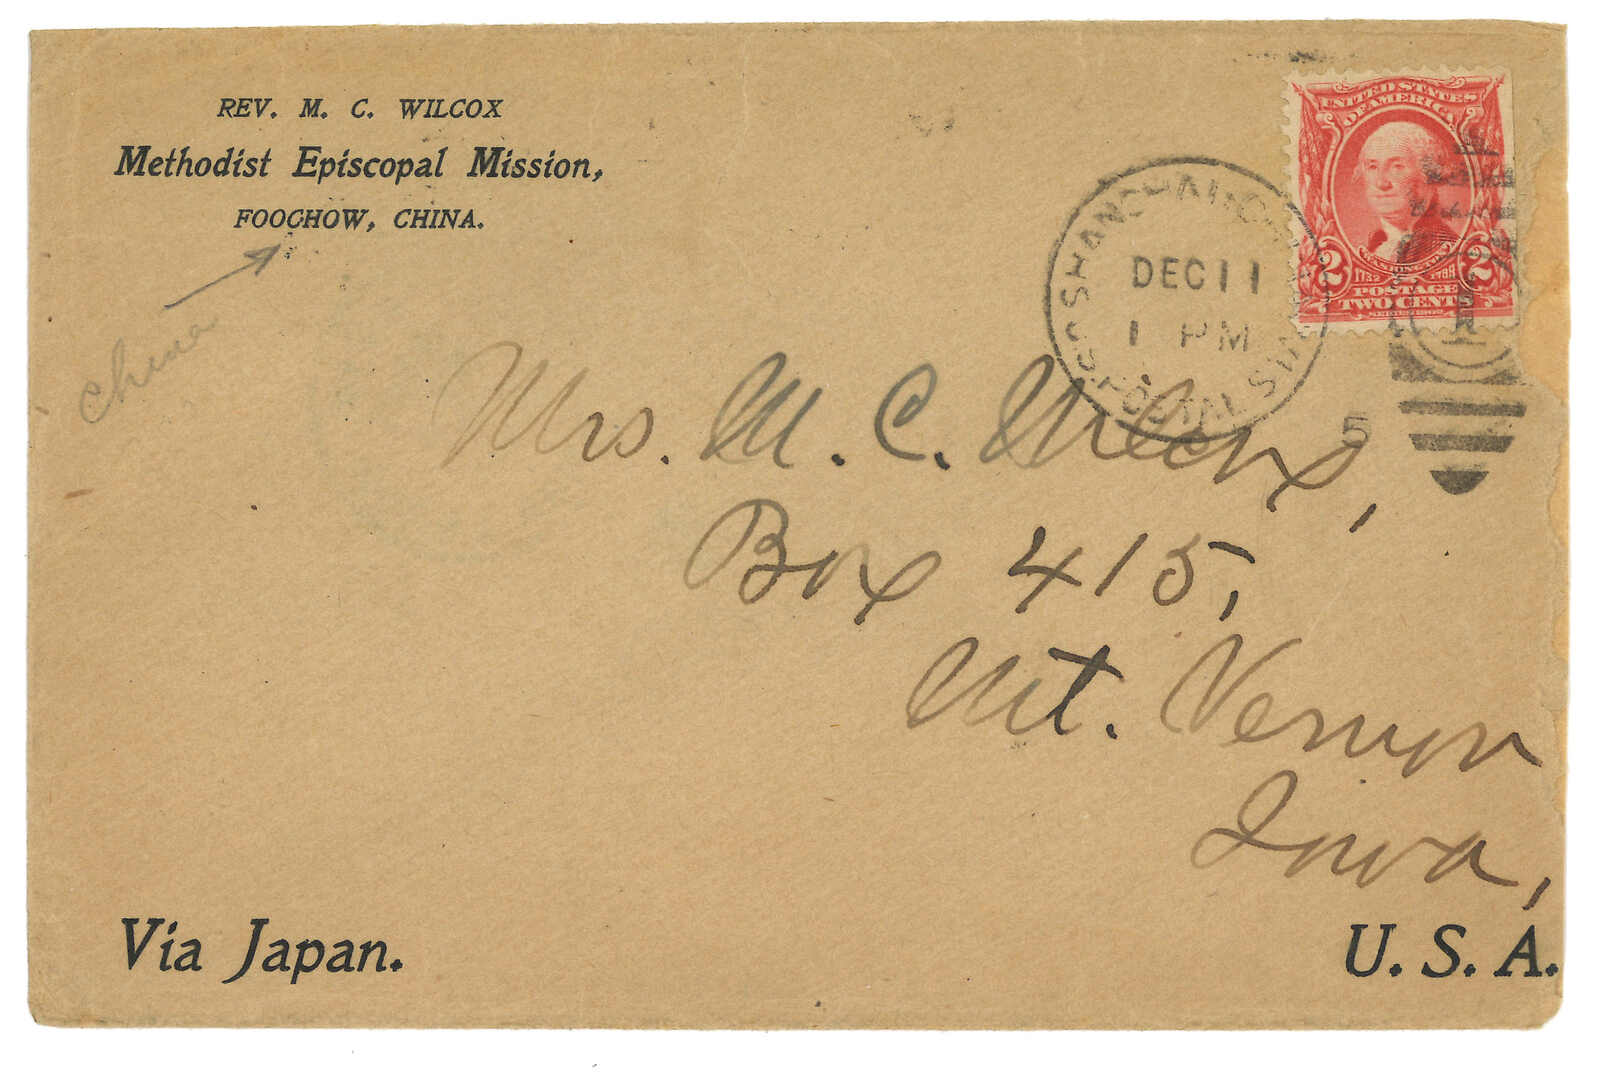 REV. M. C. WILCOX
Methodist Episcopal Mission,
FOOCHOW, CHINA.
China
UNITED STATES
OF AMERICA
SHANGHAI, CHINA
DEC 11
1 PM
U.S. POSTAL
WASHINGTON
1732 1799
2 2
POSTAGE
TWO CENTS
SERIES 1902
5
Mrs. M. C. Wilcox,
Box 415,
Mt. Vernon
Iowa,
Via Japan.
U. S. A.